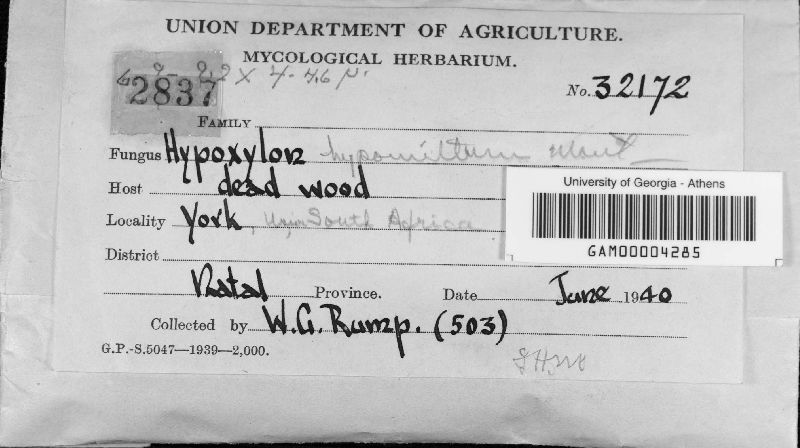 UNION DEPARTMENT OF AGRICULTURE.
MYCOLOGICAL HERBARIUM.
2837
× 4-4.6 µ.
No. 32172
FAMILY
Fungus Hypoxylon hypomiltum Mont
Host dead wood
Locality York, Union South Africa
District
Natal Province. Date June 1940
Collected by W.G. Rump. (503)
G.P.-S.5047—1939—2,000.
University of Georgia - Athens
GAM00004285